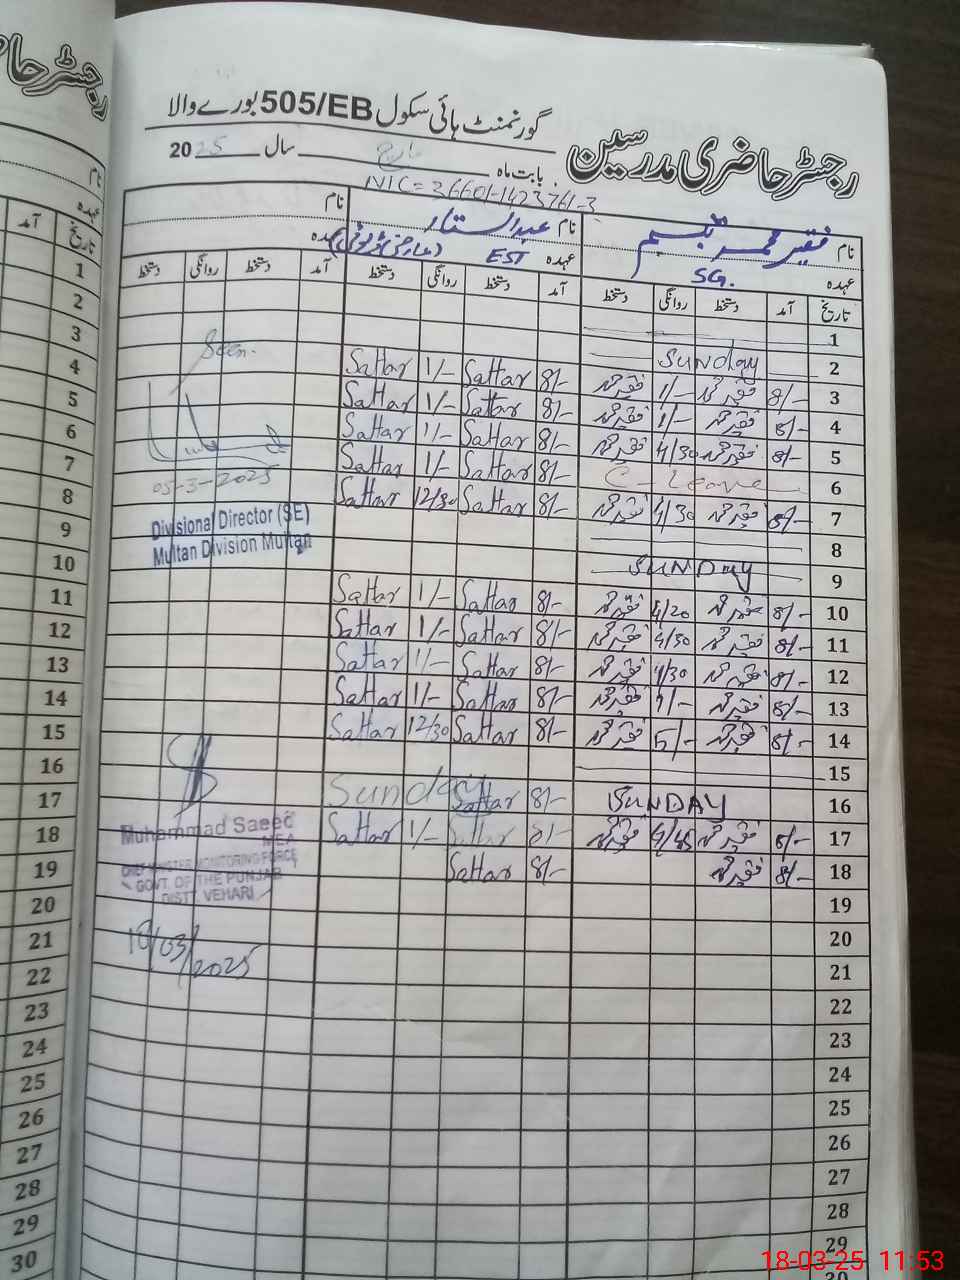 رجسٹر حاضری مدرسین
گورنمنٹ ہائی سکول 505/EB بورے والا
بابت ماہ مارچ سال 2025
NIC = 36601-1423761-3
نام فقیر محمد تبسم نام عبدالستار نام
عہدہ SG. عہدہ EST (عارضی ڈیوٹی) عہدہ
تاریخ آمد دستخط روانگی دستخط آمد دستخط روانگی دستخط آمد دستخط روانگی دستخط
1
2 Sunday
3 8/- فقیر محمد 1/- فقیر محمد 8/- Sattar 1/- Sattar
4 8/- فقیر محمد 1/- فقیر محمد 8/- Sattar 1/- Sattar
5 8/- فقیر محمد 4/30 فقیر محمد 8/- Sattar 1/- Sattar
6 C-Leave 8/- Sattar 1/- Sattar
7 8/- فقیر محمد 4/30 فقیر محمد 8/- Sattar 12/30 Sattar
8
9 SUNDay
10 8/- فقیر محمد 4/20 فقیر محمد 8/- Sattar 1/- Sattar
11 8/- فقیر محمد 4/30 فقیر محمد 8/- Sattar 1/- Sattar
12 8/- فقیر محمد 4/30 فقیر محمد 8/- Sattar 1/- Sattar
13 8/- فقیر محمد 1/- فقیر محمد 8/- Sattar 1/- Sattar
14 8/- فقیر محمد 5/- فقیر محمد 8/- Sattar 12/30 Sattar
15
16 SUNDAY 8/- Sattar Sunday
17 8/- فقیر محمد 4/45 فقیر محمد 8/- Sattar 1/- Sattar
18 8/- فقیر محمد 8/- Sattar
19
20
21
22
23
24
25
26
27
28
29
30
Seen.
05-3-2025
Divisional Director (SE)
Multan Division Multan
Muhammad Saeed
MEA
CHIEF MINISTER MONITORING FORCE
GOVT. OF THE PUNJAB
DISTT. VEHARI
18/03/2025
رجسٹر حاضری
نام
عہدہ
تاریخ آمد
1
2
3
4
5
6
7
8
9
10
11
12
13
14
15
16
17
18
19
20
21
22
23
24
25
26
27
28
29
30
18-03-25 11:53